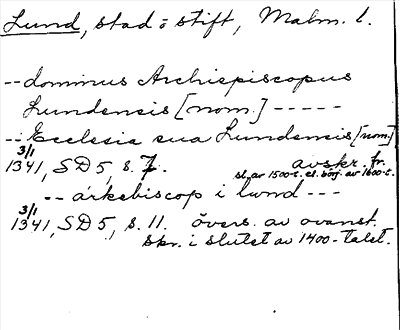 Lund, stad o stift, Malm. l.
-- dominus Archiepiscopus
Lundensis [nom.] -----
-- Ecclesia sua Lundensis [nom.]
3/1
1341, SD 5, s. 7. avskr. fr.
sl. av 1500-t. el. börj. av 1600-t.
-- ärkebiscop i lund ---
3/1
1341, SD 5, s. 11. övers. av ovanst.
skr. i slutet av 1400-talet.